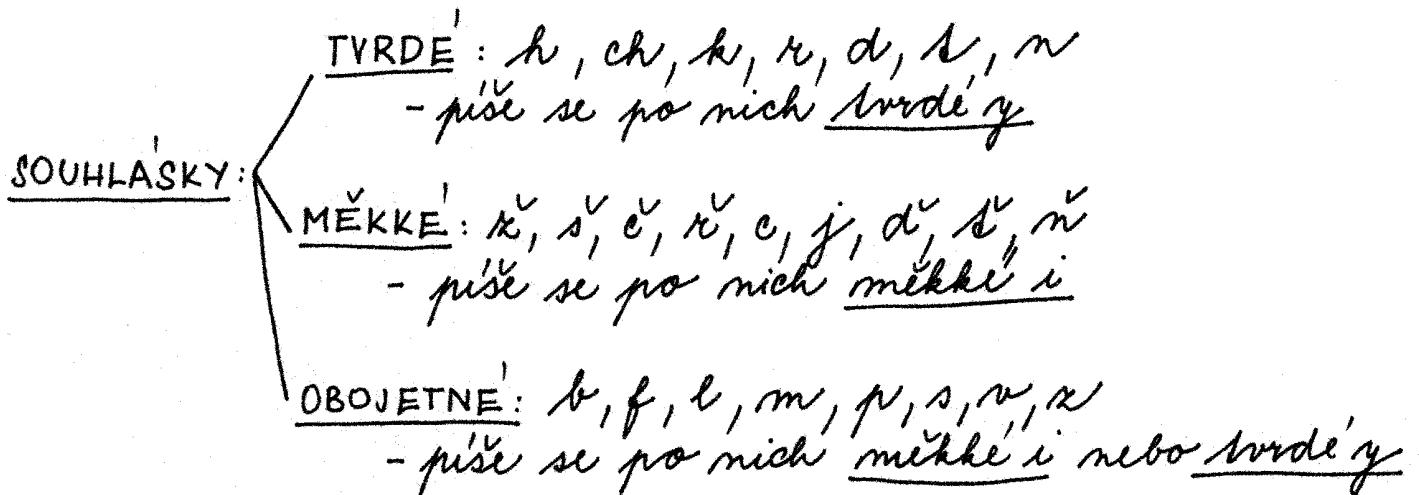 TVRDÉ: h, ch, k, r, d, t, n
- píše se po nich tvrdé y
SOUHLÁSKY:
MĚKKÉ: ž, š, č, ř, c, j, ď, ť, ň
- píše se po nich měkké i
OBOJETNÉ: b, f, l, m, p, s, v, z
- píše se po nich měkké i nebo tvrdé y